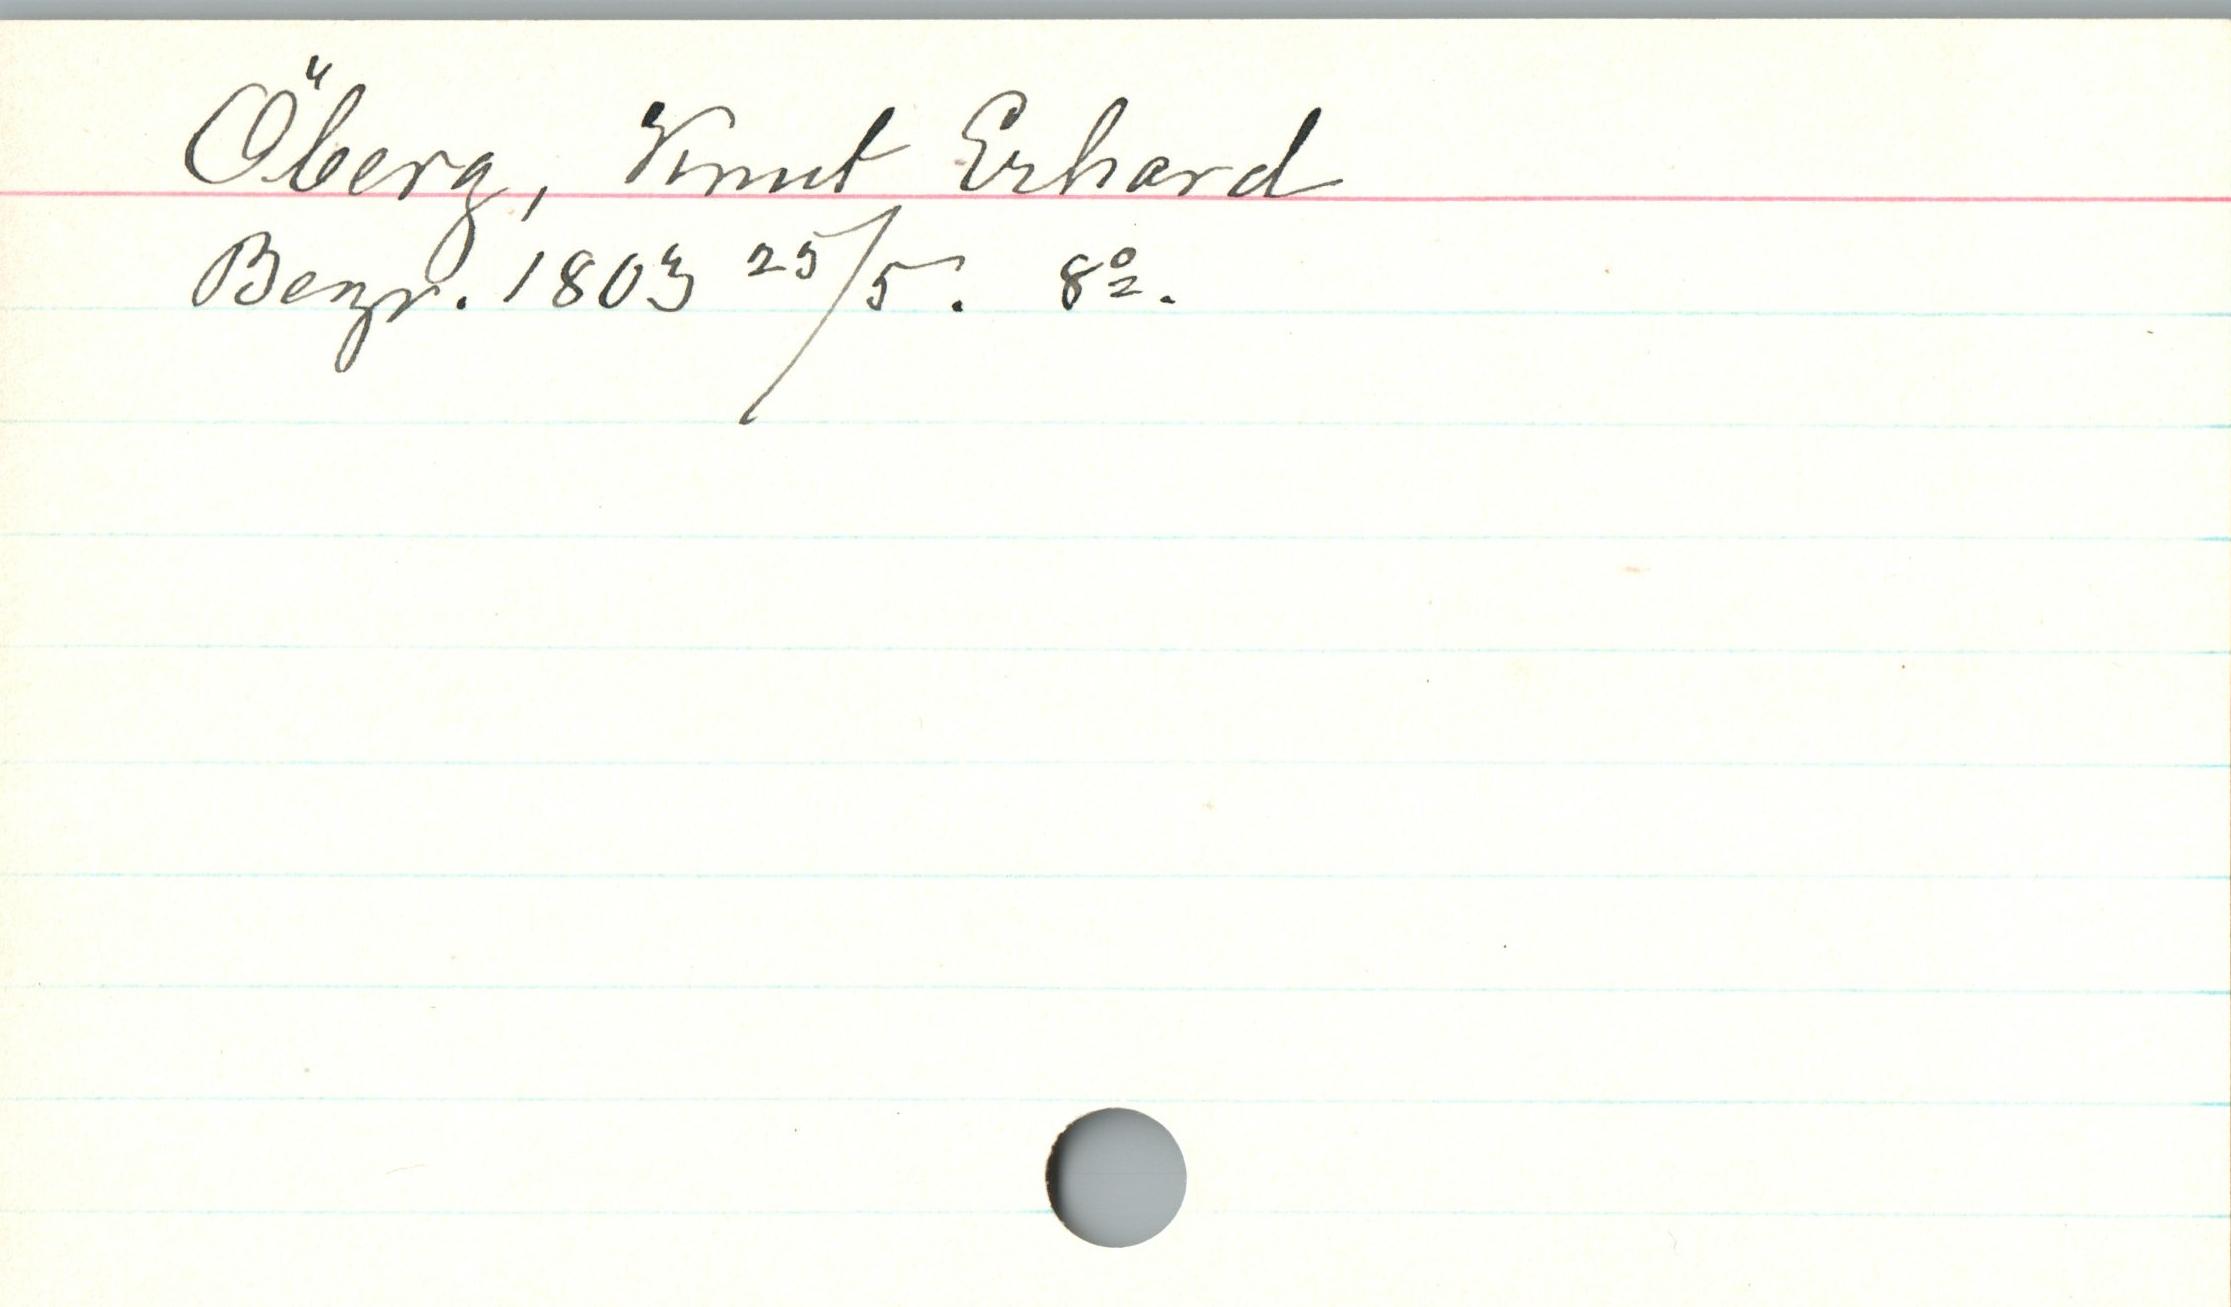 Öberg, Knut Erhard
Begr. 1803 25/5. 8º.